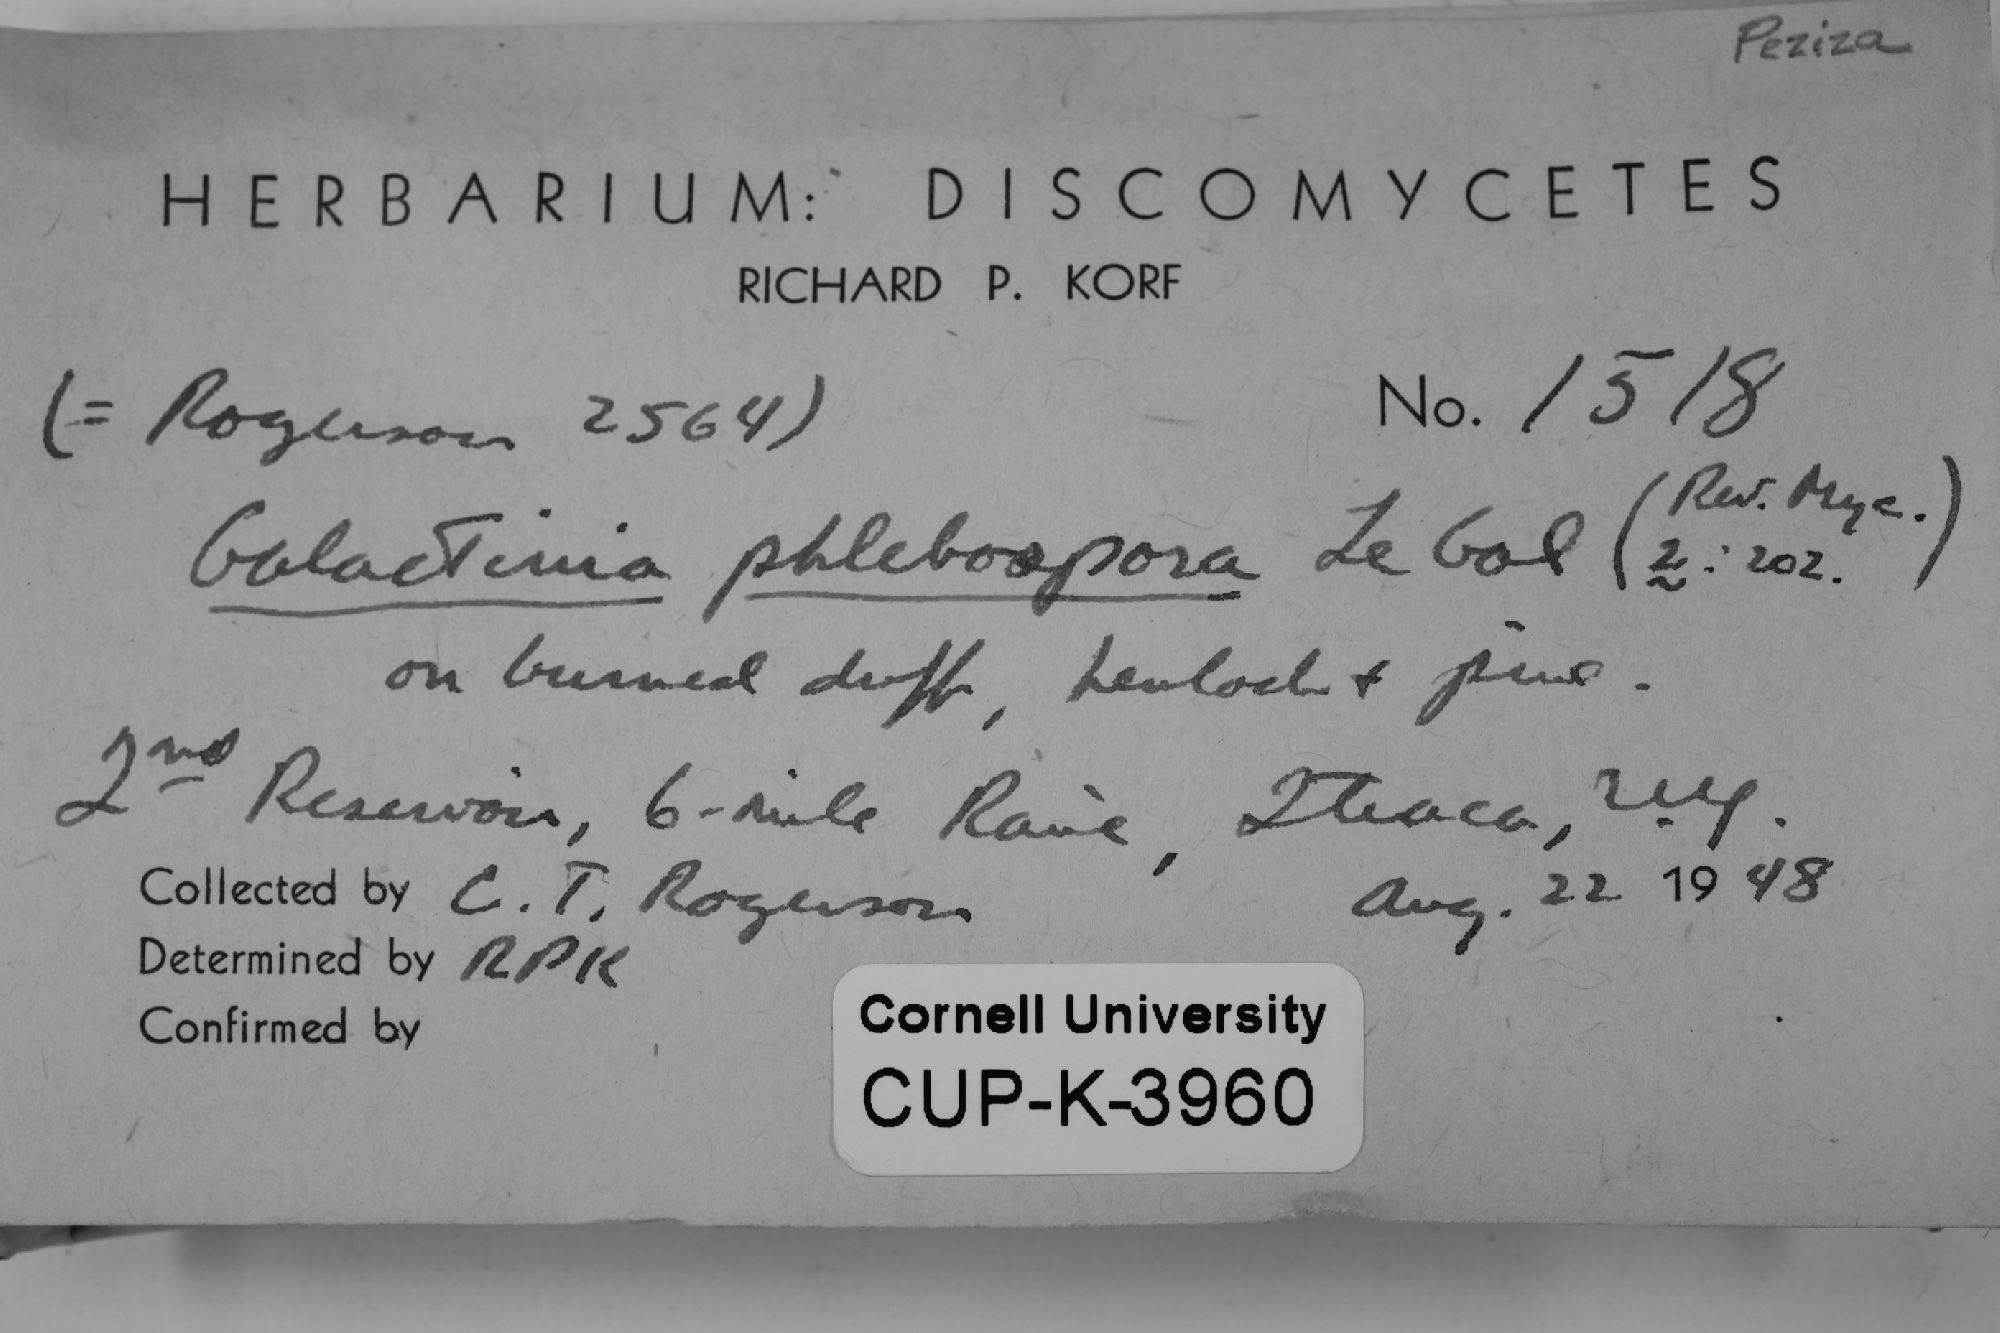 Peziza
HERBARIUM: DISCOMYCETES
RICHARD P. KORF
(= Rogerson 2564) No. 1518
Galactinia phlebospora Le Gal (Rev. Myc. 2:202.)
on burned duff, hemlock & pine.
2nd Reservoir, 6-mile Ravine, Ithaca, N.Y.
Collected by C. T. Rogerson Aug. 22 1948
Determined by RPK
Confirmed by
Cornell University
CUP-K-3960